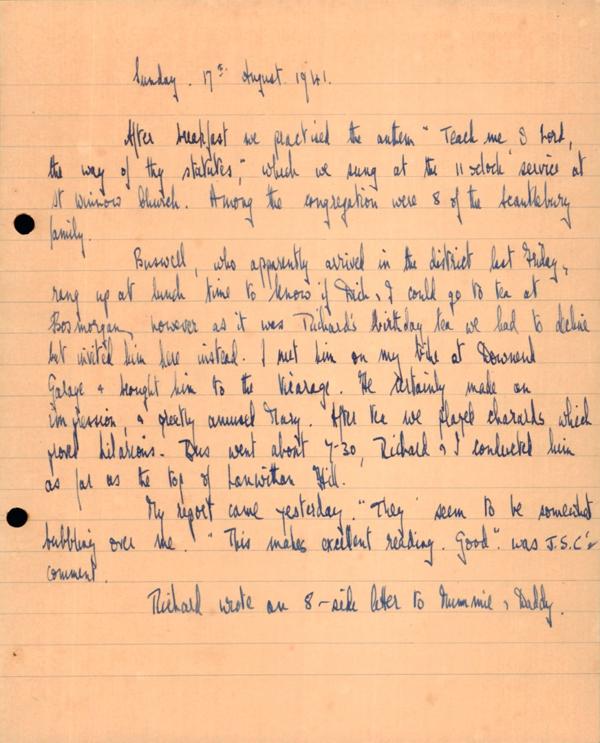 Sunday. 17th August 1941.
After breakfast we practised the anthem "Teach me O Lord,
the way of thy statutes," which we sung at the 11 o'clock service at
St Winnow Church. Among the congregation were 8 of the Scantlebury
family.
Buswell, who apparently arrived in the district last Friday,
rang up at lunch time to know if Dick & I could go to tea at
Bosmorgan, however as it was Richard's birthday tea we had to decline
but invited him here instead. I met him on my bike at Downend
Garage & brought him to the Vicarage. He certainly made an
impression, & greatly amused Mary. After tea we played charards which
proved hilarious. Bus went about 7-30, Richard & I conducted him
as far as the top of Lanwithan Hill.
My report came yesterday. "They" seem to be somewhat
bubbling over me. "This makes excellent reading. Good". was J.S.C's
comment.
Richard wrote an 8-side letter to Mummie & Daddy.